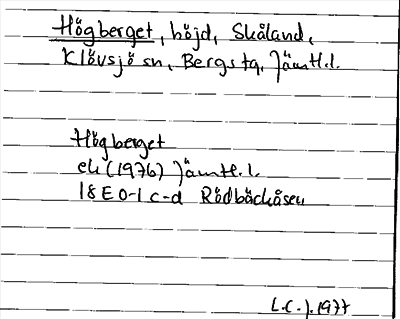 Högberget, höjd, Skåland,
Klövsjö sn, Bergs tg, Jämtl.l.
Högberget
ek (1976) Jämtl.l.
18E 0-1 c-d Rödbäckåsen
L.C.J. 1977